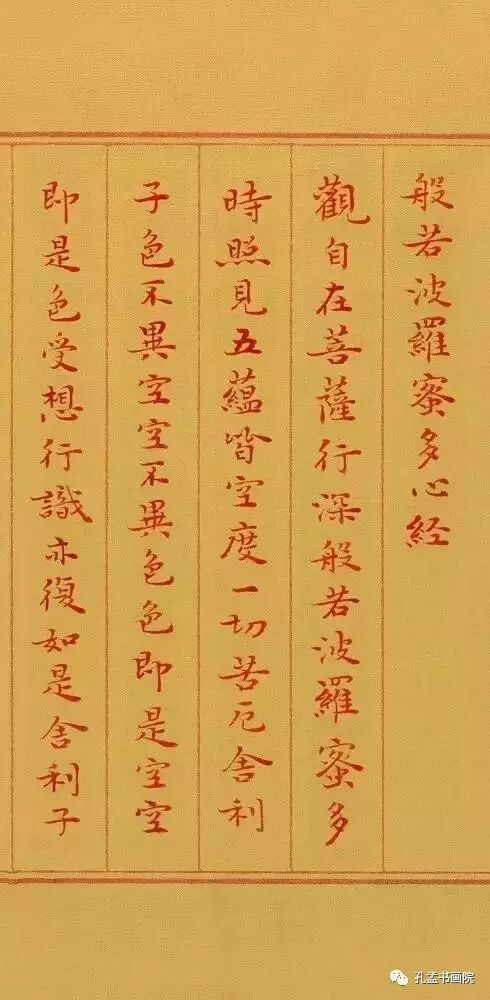 般若波羅蜜多心経
觀自在菩薩行深般若波羅蜜多
時照見五蘊皆空度一切苦厄舍利
子色不異空空不異色色即是空空
即是色受想行識亦復如是舍利子
孔孟书画院